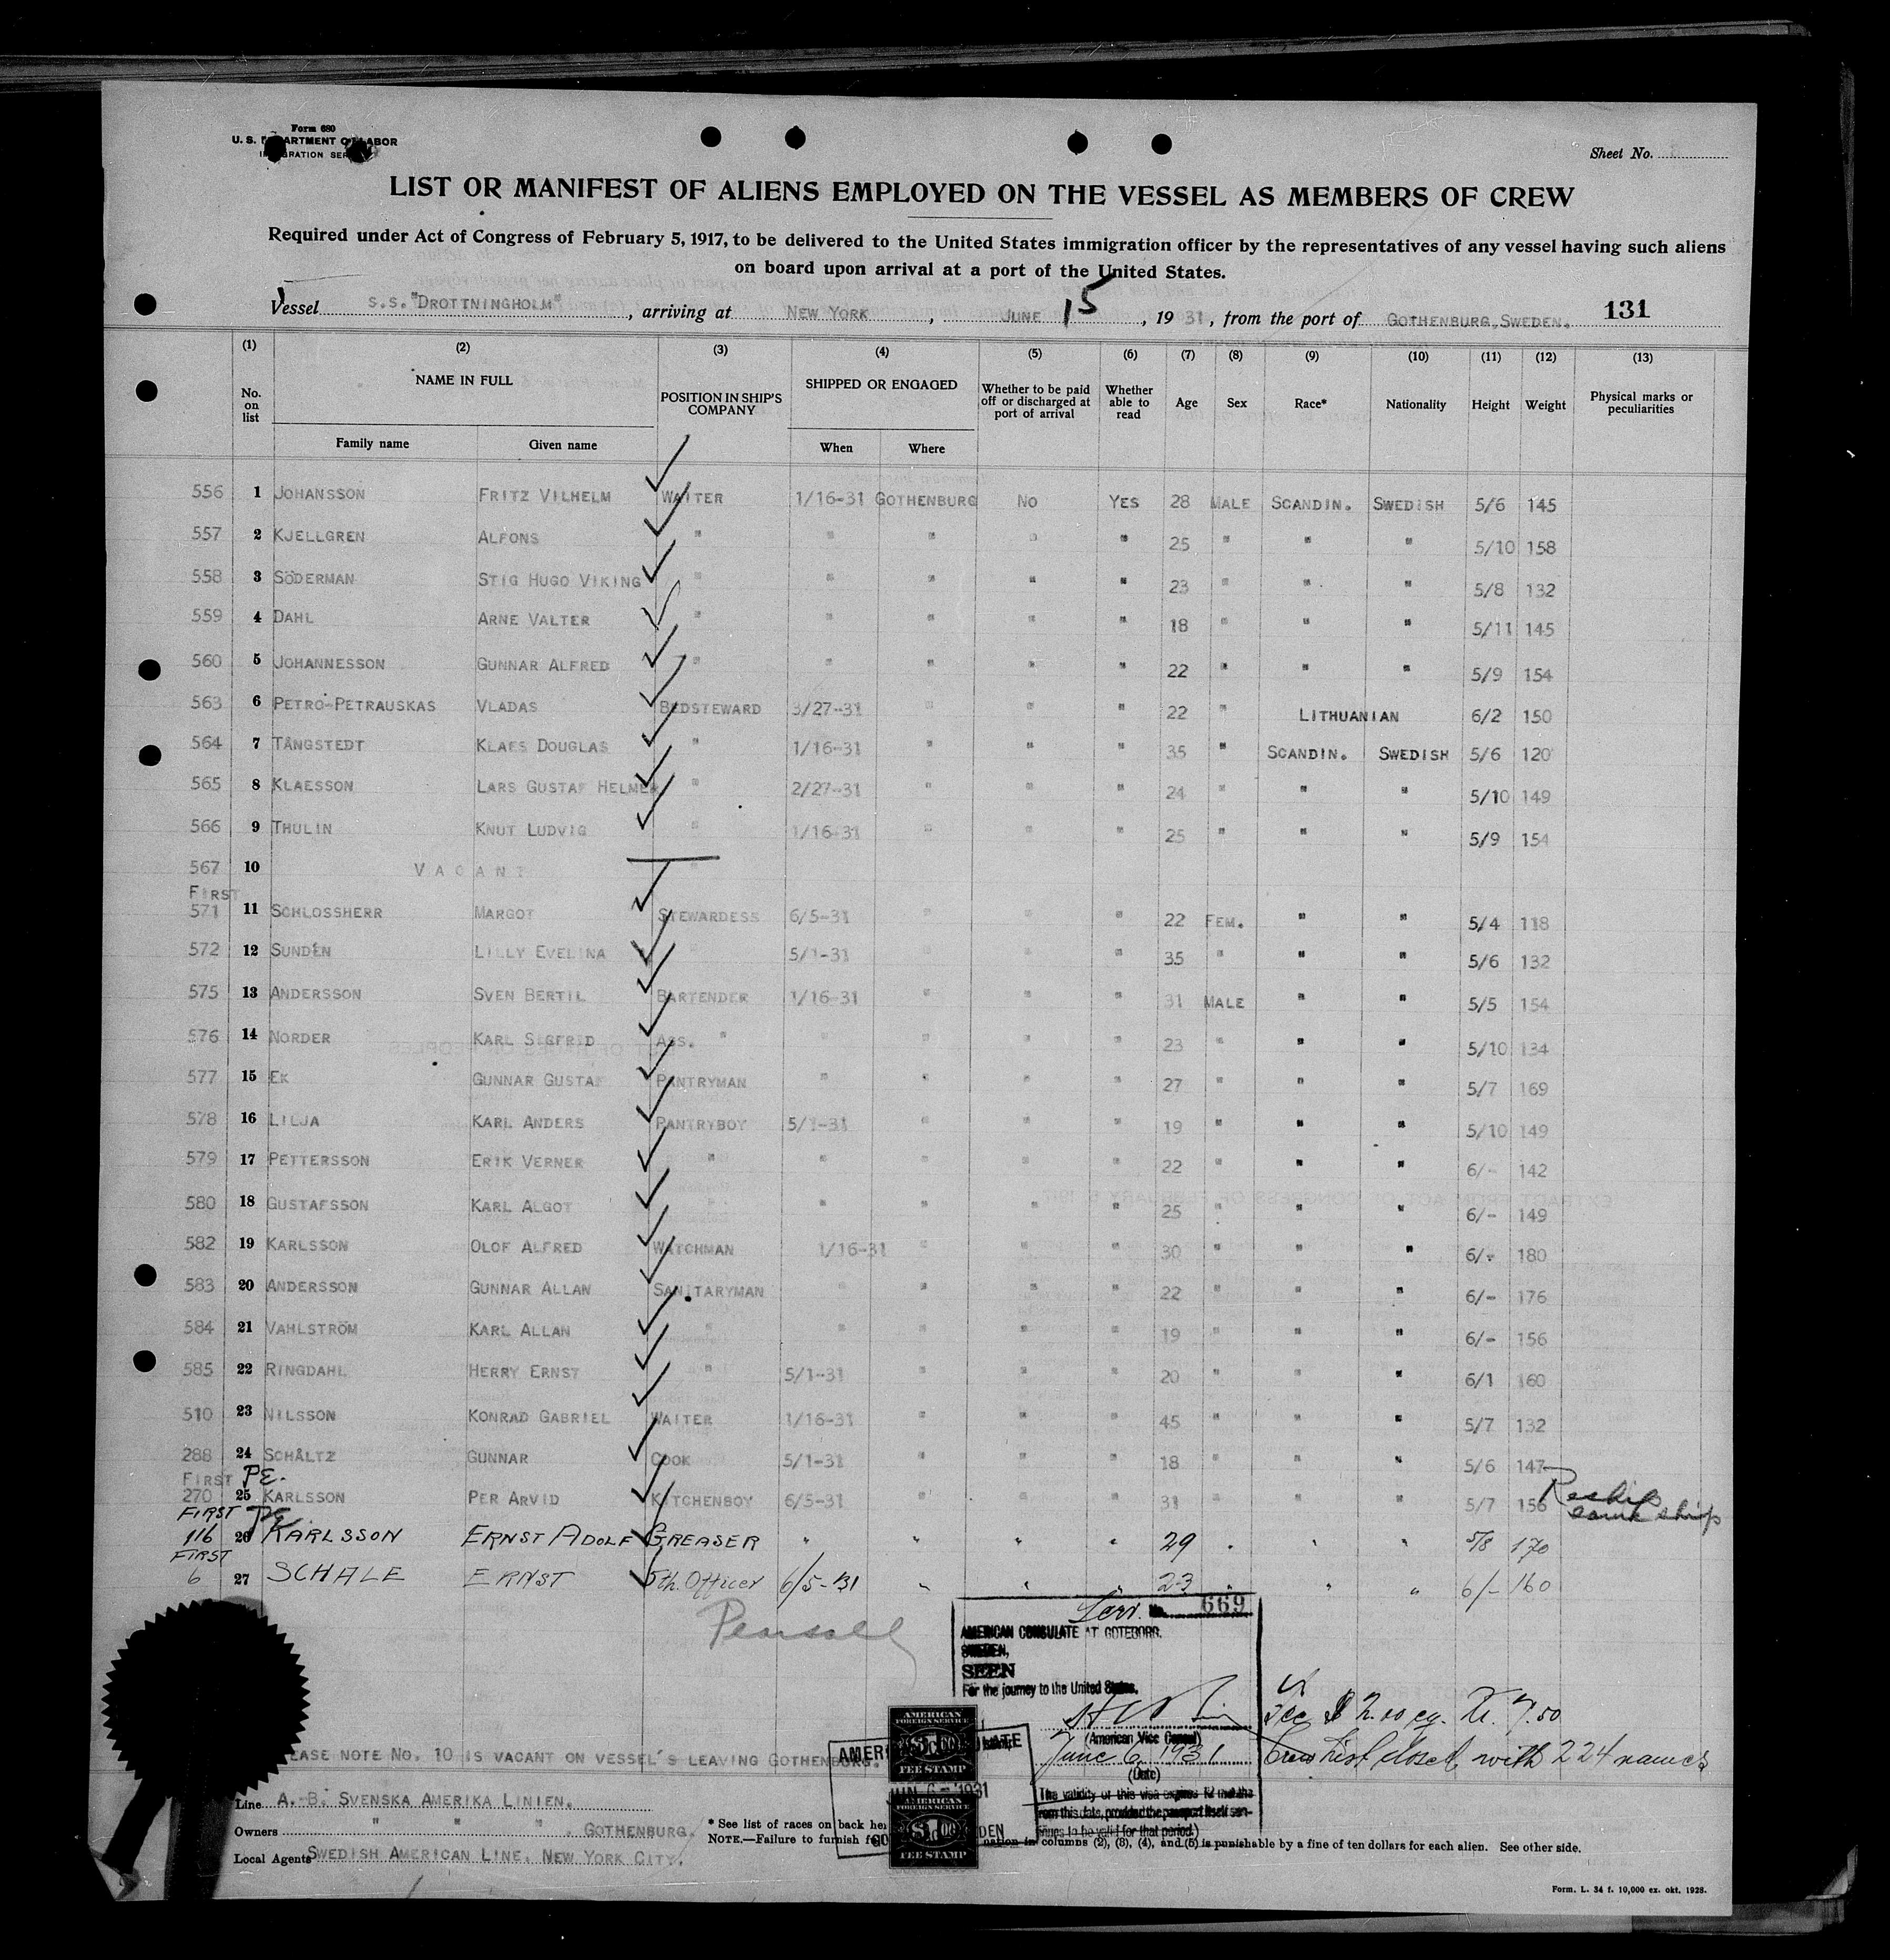 Form 680
U. S. DEPARTMENT OF LABOR
IMMIGRATION SERVICE
Sheet No.
LIST OR MANIFEST OF ALIENS EMPLOYED ON THE VESSEL AS MEMBERS OF CREW
Required under Act of Congress of February 5, 1917, to be delivered to the United States immigration officer by the representatives of any vessel having such aliens
on board upon arrival at a port of the United States.
Vessel S.S."DROTTNINGHOLM", arriving at NEW YORK, JUNE 15, 1931, from the port of GOTHENBURG, SWEDEN. 131
(1) (2) (3) (4) (5) (6) (7) (8) (9) (10) (11) (12) (13)
No. on list NAME IN FULL POSITION IN SHIP'S COMPANY SHIPPED OR ENGAGED Whether to be paid off or discharged at port of arrival Whether able to read Age Sex Race* Nationality Height Weight Physical marks or peculiarities
Family name Given name When Where
556 1 JOHANSSON FRITZ VILHELM WAITER 1/16-31 GOTHENBURG NO YES 28 MALE SCANDIN. SWEDISH 5/6 145
557 2 KJELLGREN ALFONS " " " " " 25 " " " 5/10 158
558 3 SÖDERMAN STIG HUGO VIKING " " " " " 23 " " " 5/8 132
559 4 DAHL ARNE VALTER " " " " " 18 " " " 5/11 145
560 5 JOHANNESSON GUNNAR ALFRED " " " " " 22 " " " 5/9 154
563 6 PETRO-PETRAUSKAS VLADAS BEDSTEWARD 3/27-31 " " " 22 " LITHUANIAN 6/2 150
564 7 TÅNGSTEDT KLAES DOUGLAS " 1/16-31 " " " 35 " SCANDIN. SWEDISH 5/6 120
565 8 KLAESSON LARS GUSTAF HELMER " 2/27-31 " " " 24 " " " 5/10 149
566 9 THULIN KNUT LUDVIG " 1/16-31 " " " 25 " " " 5/9 154
567 10 VACANT "
FIRST
571 11 SCHLOSSHERR MARGOT STEWARDESS 6/5-31 " " " 22 FEM. " " 5/4 118
572 12 SUNDÉN LILLY EVELINA " 5/1-31 " " " 35 " " " 5/6 132
575 13 ANDERSSON SVEN BERTIL BARTENDER 1/16-31 " " " 31 MALE " " 5/5 154
576 14 NORDER KARL SIGFRID ASS. " " " " " 23 " " " 5/10 134
577 15 EK GUNNAR GUSTAF PANTRYMAN " " " " 27 " " " 5/7 169
578 16 LILJA KARL ANDERS PANTRYBOY 5/1-31 " " " 19 " " " 5/10 149
579 17 PETTERSSON ERIK VERNER " " " " " 22 " " " 6/- 142
580 18 GUSTAFSSON KARL ALGOT " " " " " 25 " " " 6/- 149
582 19 KARLSSON OLOF ALFRED WATCHMAN 1/16-31 " " " 30 " " " 6/- 180
583 20 ANDERSSON GUNNAR ALLAN SANITARYMAN " " " " 22 " " " 6/- 176
584 21 VAHLSTRÖM KARL ALLAN " " " " " 19 " " " 6/- 156
585 22 RINGDAHL HERRY ERNST " 5/1-31 " " " 20 " " " 6/1 160
510 23 NILSSON KONRAD GABRIEL WAITER 1/16-31 " " " 45 " " " 5/7 132
288 24 SCHÅLTZ GUNNAR COOK 5/1-31 " " " 18 " " " 5/6 147
FIRST PE.
270 25 KARLSSON PER ARVID KITCHENBOY 6/5-31 " " " 31 " " " 5/7 156 Reship same ship
FIRST PE.
116 26 KARLSSON ERNST ADOLF GREASER " " " " 29 " " " 5/8 170
FIRST
6 27 SCHALE ERNST 5th. Officer 6/5-31 " " " 23 " " " 6/- 160
No. 669
AMERICAN CONSULATE AT GOTEBORG,
SWEDEN,
SEEN
For the journey to the United States.
(American Vice Consul)
June 6, 1931
(Date)
The validity of this visa expires 12 months
from this date, provided the passport itself con-
tinues to be valid for that period.)
Fee $ 2.00 eq. Kr. 7.50
Crew list closed with 224 names
PLEASE NOTE NO. 10 IS VACANT ON VESSEL'S LEAVING GOTHENBURG.
AMERICAN FOREIGN SERVICE
FEE STAMP
JUN 6 - 1931
AMERICAN FOREIGN SERVICE
$1.00
FEE STAMP
Line A.-B. SVENSKA AMERIKA LINIEN.
Owners " " " . GOTHENBURG.
Local Agents SWEDISH AMERICAN LINE. NEW YORK CITY.
* See list of races on back
NOTE.—Failure to furnish columns (2), (3), (4), and (5) is punishable by a fine of ten dollars for each alien. See other side.
Form. L. 34 f. 10,000 ex. okt. 1928.